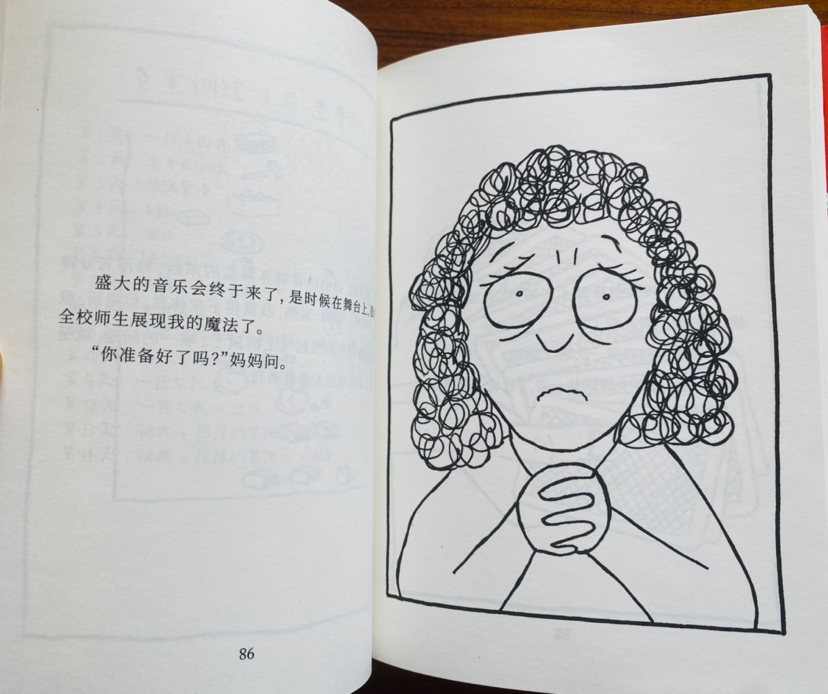 盛大的音乐会终于来了，是时候在舞台上，
全校师生展现我的魔法了。
“你准备好了吗？”妈妈问。
86